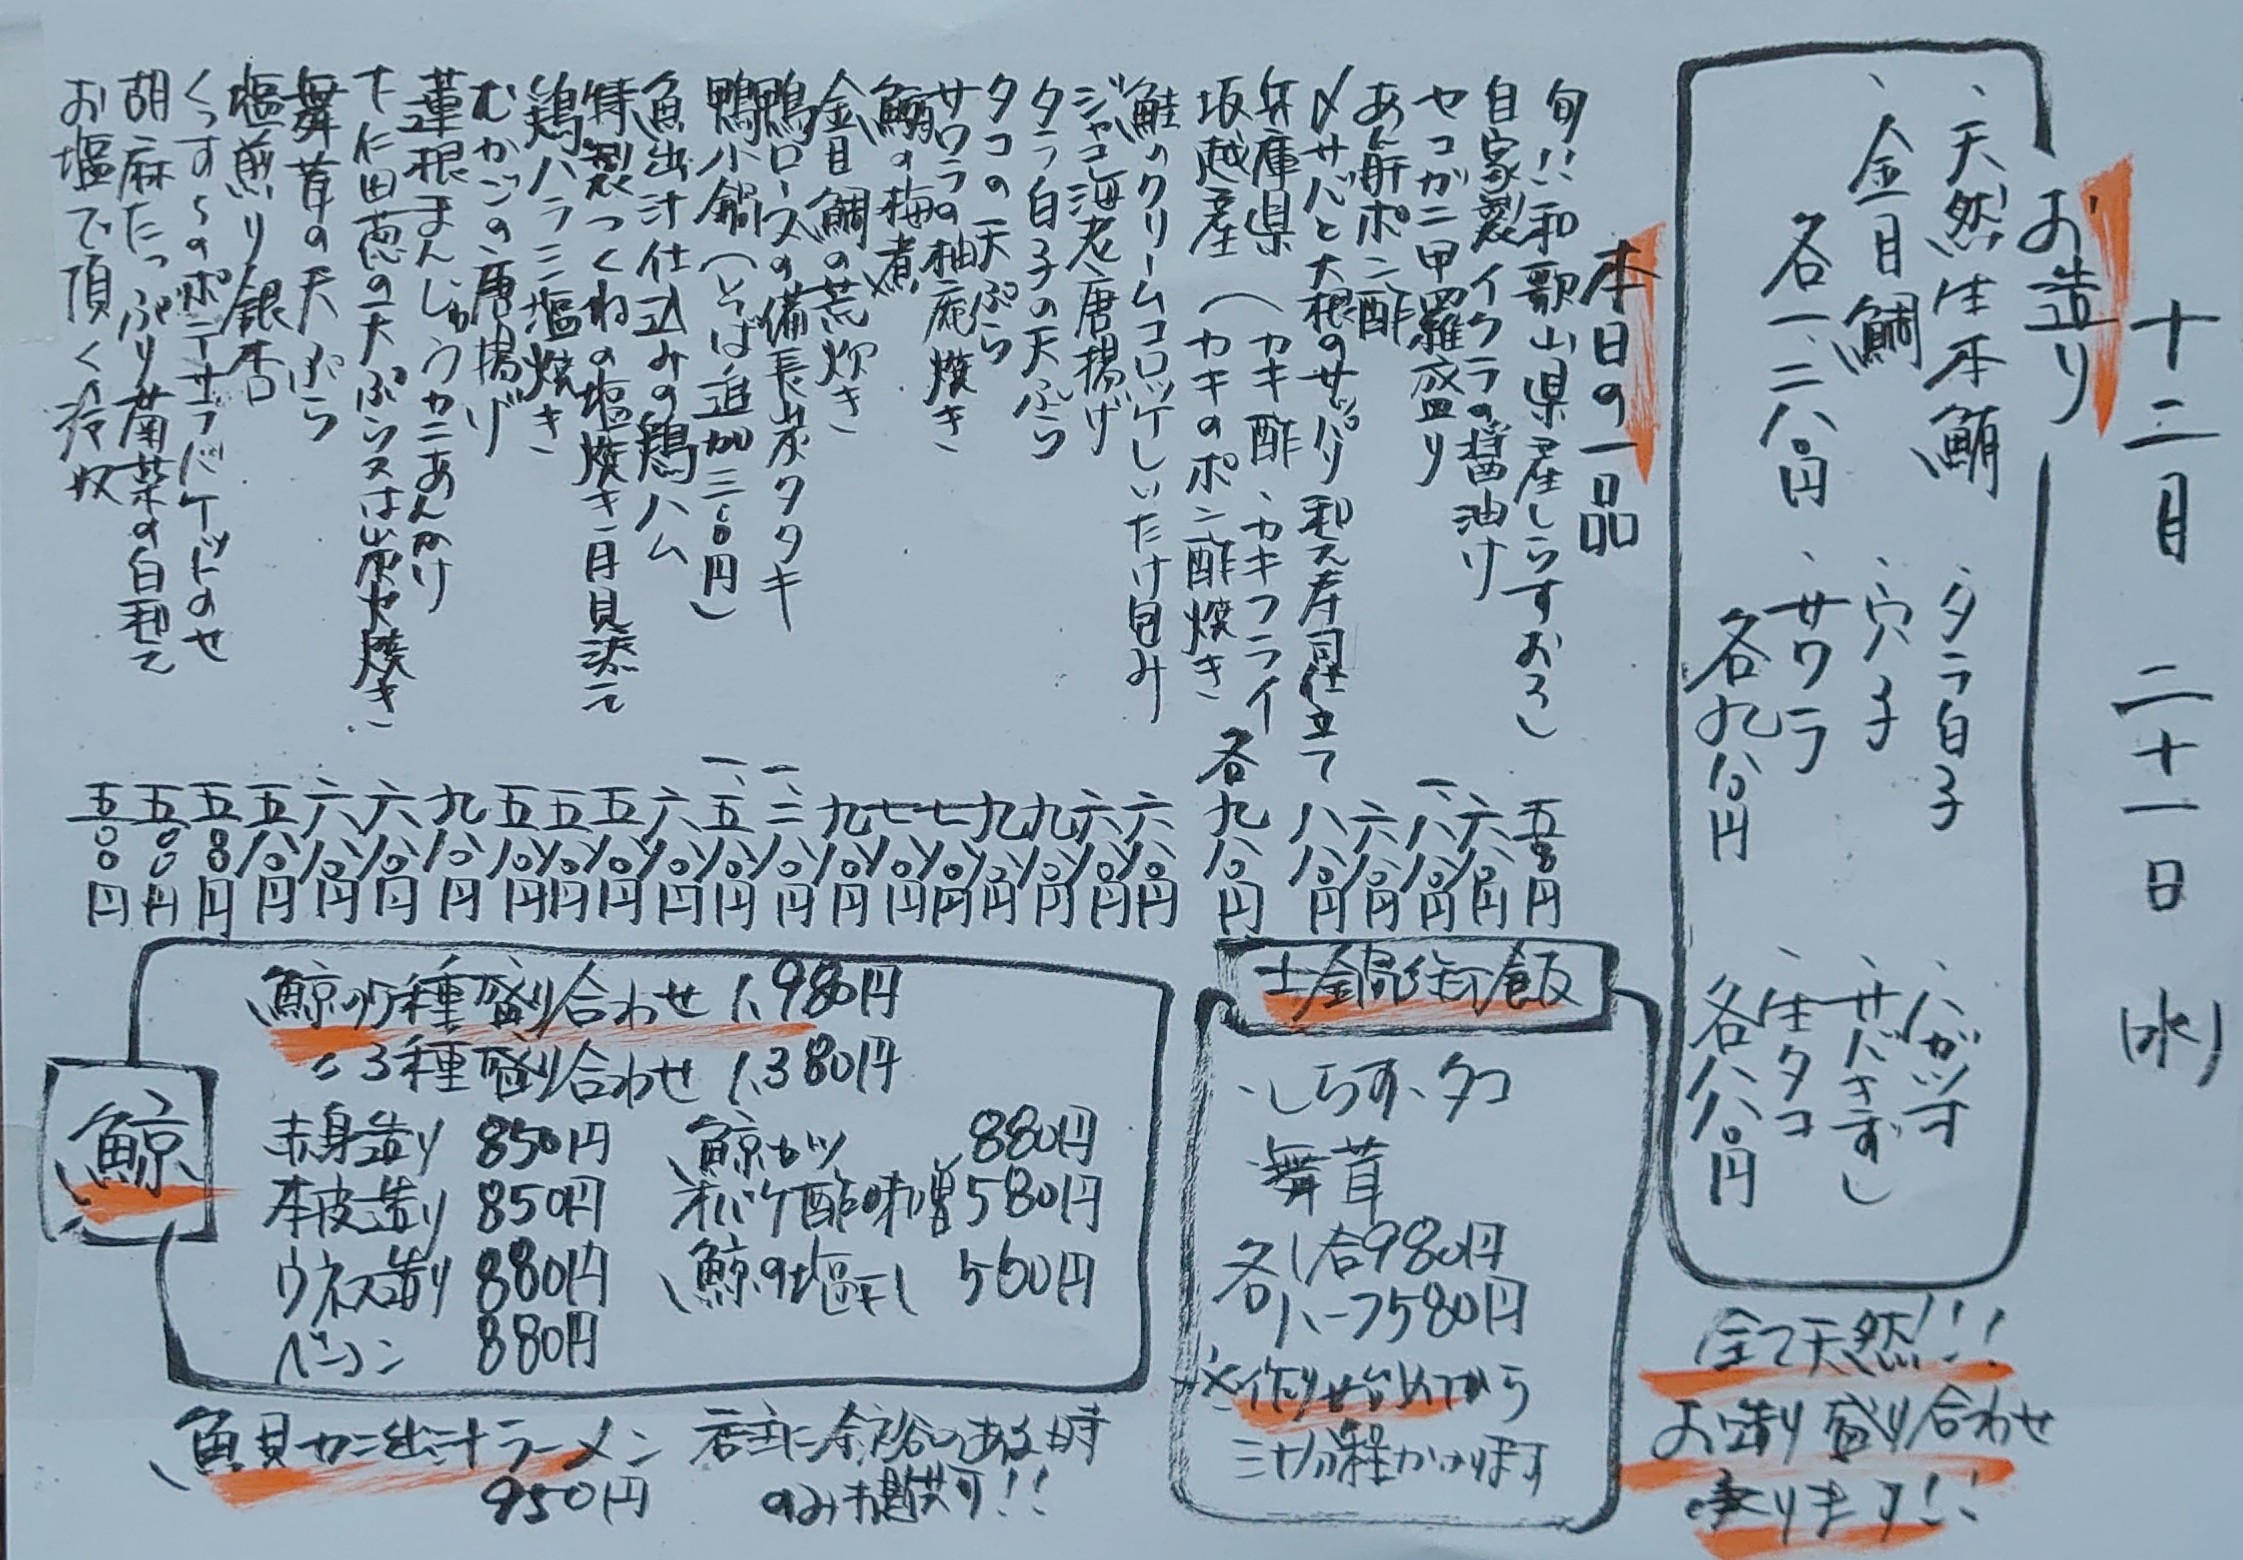 十二月 二十一日 (水)
お造り
、天然生本鮪
、金目鯛
各一、二八〇円
、タラ白子
、穴子
、サワラ
各九八〇円
、ハガツオ
、サバきずし
、生タコ
各八八〇円
全て天然!!!
お造り盛り合わせ
承ります!!
本日の一品
旬!!和歌山県産しらすおろし 五八〇円
自家製イクラの醤油け 六八〇円
セコガニ甲羅盛り 一、八八〇円
あん肝ポン酢 六八〇円
〆サバと大根のサッパリ和え寿司仕立て 八八〇円
兵庫県 (カキ酢、カキフライ
坂越産 (カキのポン酢焼き 各九八〇円
鮭のクリームコロッケしいたけ包み 六八〇円
ジャコ海老唐揚げ 六八〇円
タラ白子の天ぷら 九八〇円
タコの天ぷら 九八〇円
サワラの柚庵焼き 七八〇円
鰯の梅煮 七八〇円
金目鯛の荒炊き 九八〇円
鴨ロースの備長炭タタキ 一、二八〇円
鴨小鍋(そば追加三〇〇円) 一、五八〇円
魚出汁仕込みの鶏ハム 六八〇円
特製つくねの塩焼き月見添え 五八〇円
鶏ハラミ塩焼き 五八〇円
むかごの唐揚げ 五八〇円
蓮根まんじゅうカニあんかけ 九八〇円
下仁田葱の天ぷら又は炭火焼き 六八〇円
舞茸の天ぷら 六八〇円
塩煎り銀杏 五八〇円
くんすらのポテサラバケットのせ 五八〇円
胡麻たっぷり菊菜の白和え 五〇〇円
お塩で頂く冷奴 五〇〇円
土鍋御飯
、しらす、タコ
舞茸
各1合980円
ハーフ580円
※作り始めてから
三十分程かかります
鯨
鯨の5種盛り合わせ 1,980円
〃3種盛り合わせ 1,380円
赤身造り 850円
本皮造り 850円
ウネス造り 880円
ベーコン 880円
鯨カツ 880円
オバケ酢味噌 580円
鯨の塩干し 560円
魚貝カニ出汁ラーメン
950円
店主に余裕のある時
のみ提供可!!